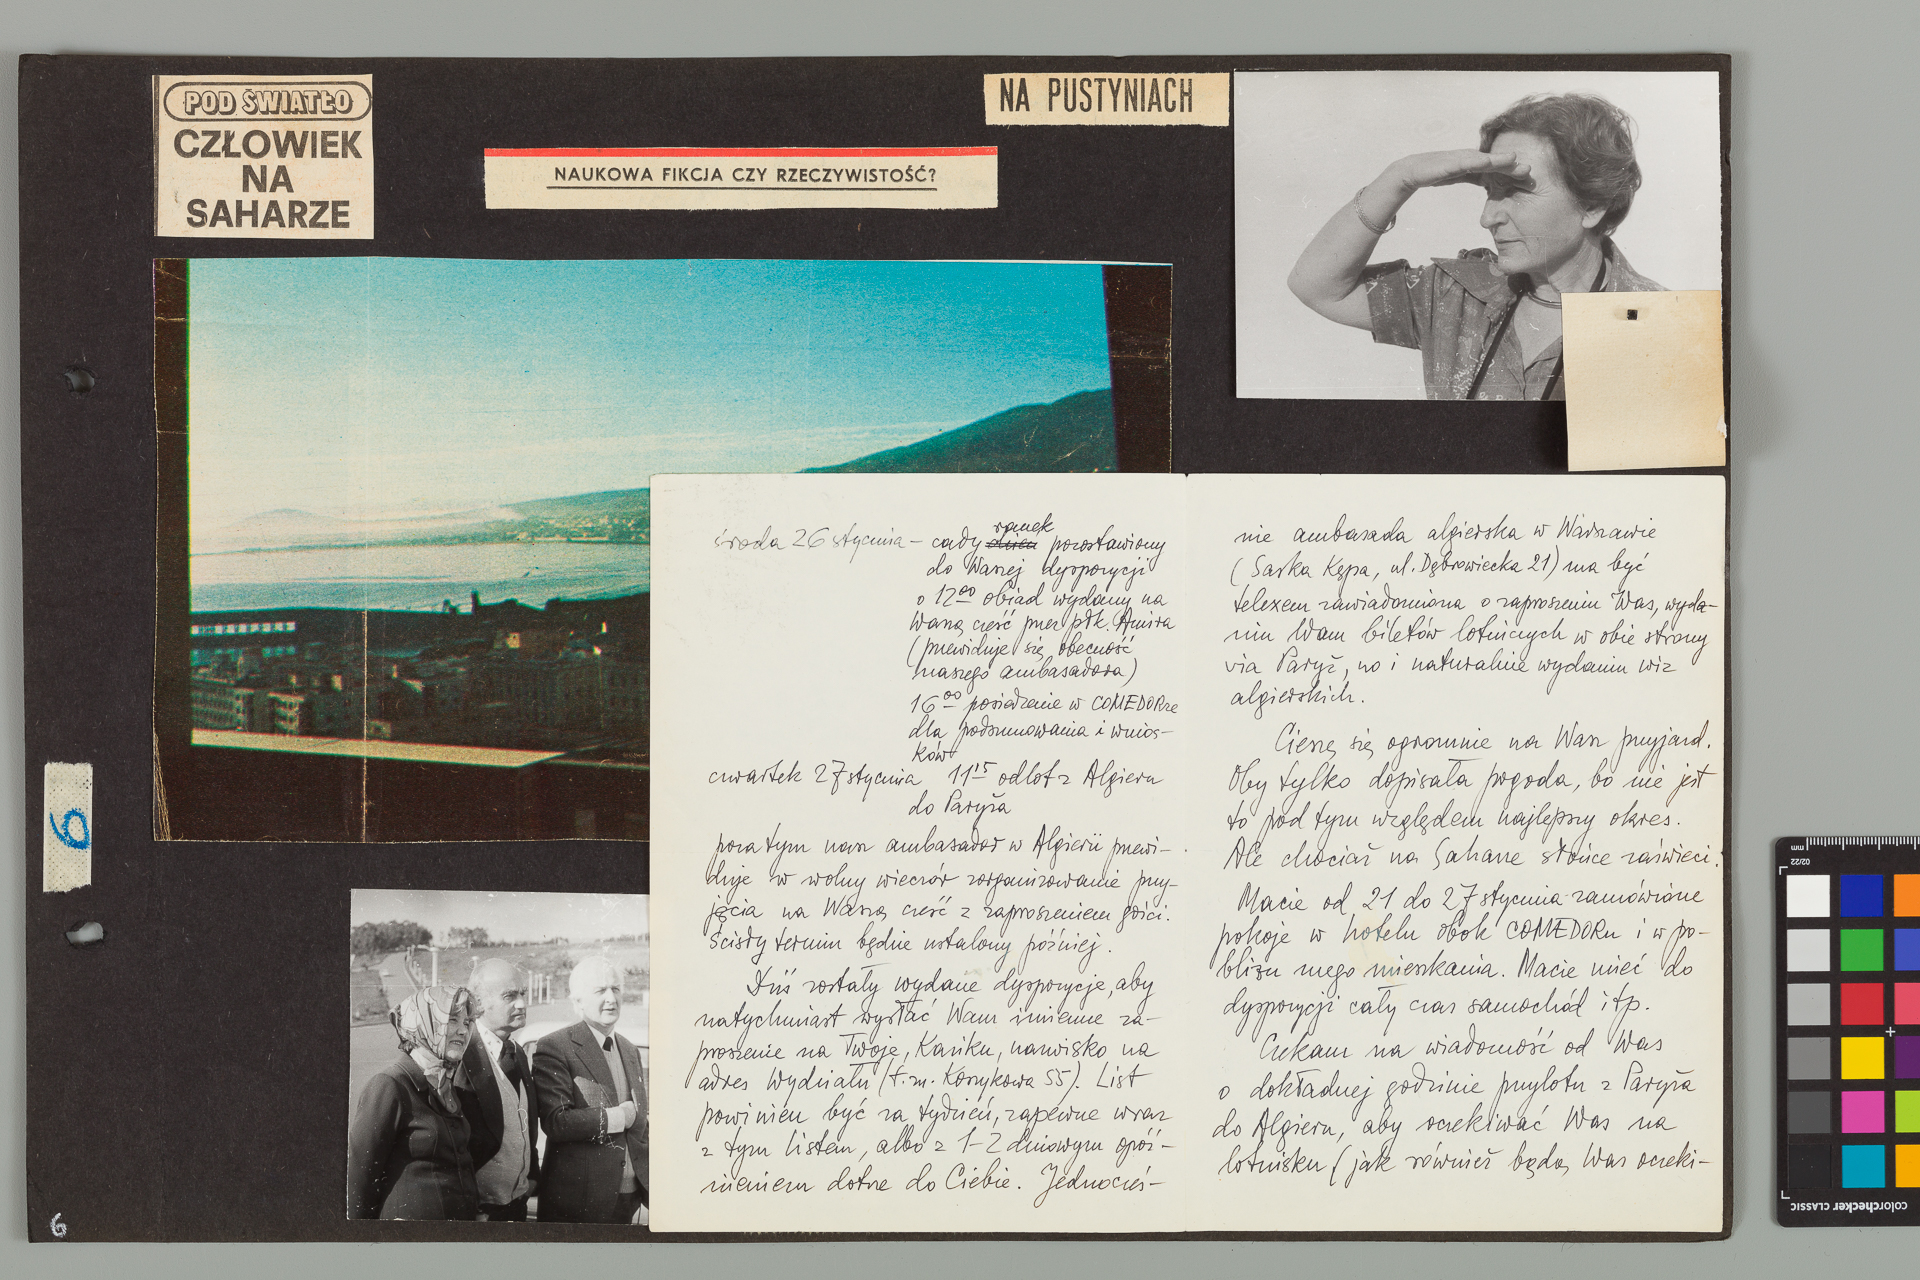 POD ŚWIATŁO
CZŁOWIEK
NA
SAHARZE
NAUKOWA FIKCJA CZY RZECZYWISTOŚĆ?
NA PUSTYNIACH
środa 26 stycznia – cały dzień ranek pozostawiony
do Waszej dyspozycji
o 12⁰⁰ obiad wydany na
Waszą cześć przez płk. Amira
(przewiduje się obecność
naszego ambasadora)
16⁰⁰ posiedzenie w COMEDORze
dla podsumowania i wnios-
ków
czwartek 27 stycznia 11¹⁵ odlot z Algieru
do Paryża
poza tym nasz ambasador w Algierii przewi-
duje w wolny wieczór zorganizowanie przy-
jęcia na Waszą cześć z zaproszeniem gości.
Ścisły termin będzie ustalony później.
Dziś zostały wydane dyspozycje, aby
natychmiast wysłać Wam imienne za-
proszenie na Twoje, Kaziku, nazwisko na
adres Wydziału (t.zn. Koszykowa 55). List
powinien być za tydzień, zapewne wraz
z tym listem, albo z 1–2 dniowym opóź-
nieniem dotrze do Ciebie. Jednocześ-
nie ambasada algierska w Warszawie
(Saska Kępa, ul. Dąbrowiecka 21) ma być
telexem zawiadomiona o zaproszeniu Was, wyda-
niu Wam biletów lotniczych w obie strony
via Paryż, no i naturalnie wydaniu wiz
algierskich.
Cieszę się ogromnie na Wasz przyjazd.
Oby tylko dopisała pogoda, bo nie jest
to pod tym względem najlepszy okres.
Ale chociaż na Saharze słońce zaświeci.
Macie od 21 do 27 stycznia zamówione
pokoje w hotelu obok COMEDORu i w po-
bliżu mego mieszkania. Macie mieć do
dyspozycji cały czas samochód itp.
Czekam na wiadomość od Was
o dokładnej godzinie przylotu z Paryża
do Algieru, aby oczekiwać Was na
lotnisku (jak również będą Was oczeki-
6
6
mm
02/22
colorchecker CLASSIC